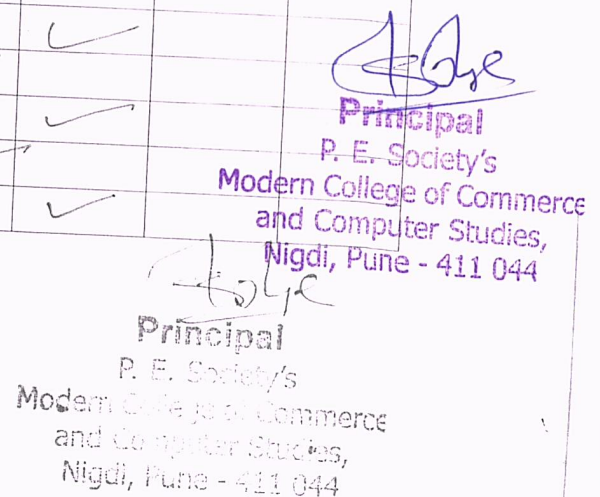 Principal
P. E. Society's
Modern College of Commerce
and Computer Studies,
Nigdi, Pune - 411 044
Principal
P. E. Society's
Modern College of Commerce
and Computer Studies,
Nigdi, Pune - 411 044